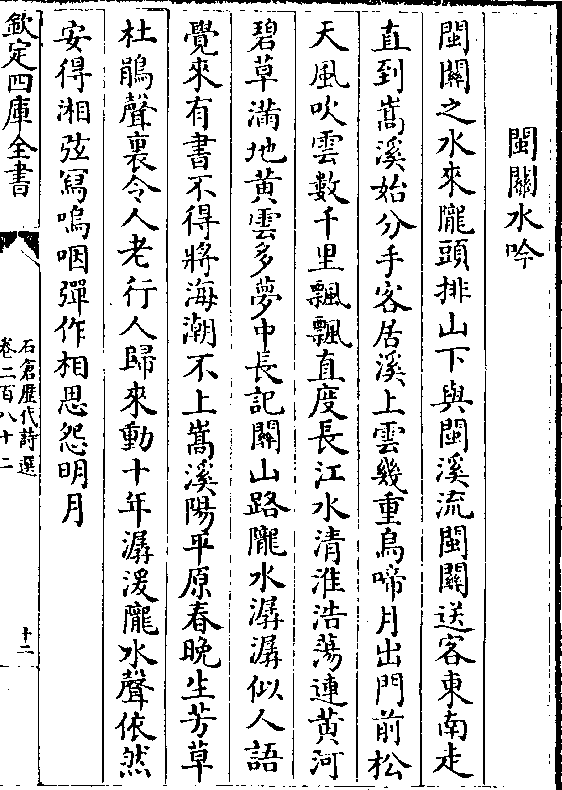 閩關水吟
閩關之水來隴頭排山下與閩溪流閩關送客東南走
直到嵩溪始分手客居溪上雲幾重烏啼月出門前松
天風吹雲數千里飄飄直度長江水清淮浩蕩連黄河
碧草滿地黄雲多夢中長記關山路隴水潺潺似人語
覺來有書不得將海潮不上嵩溪陽平原春晚生芳草
杜鵑聲裏令人老行人歸來動十年潺湲隴水聲依然
安得湘弦寫嗚咽彈作相思怨明月
欽定四庫全書
石倉歷代詩選
卷二百八十二
十二